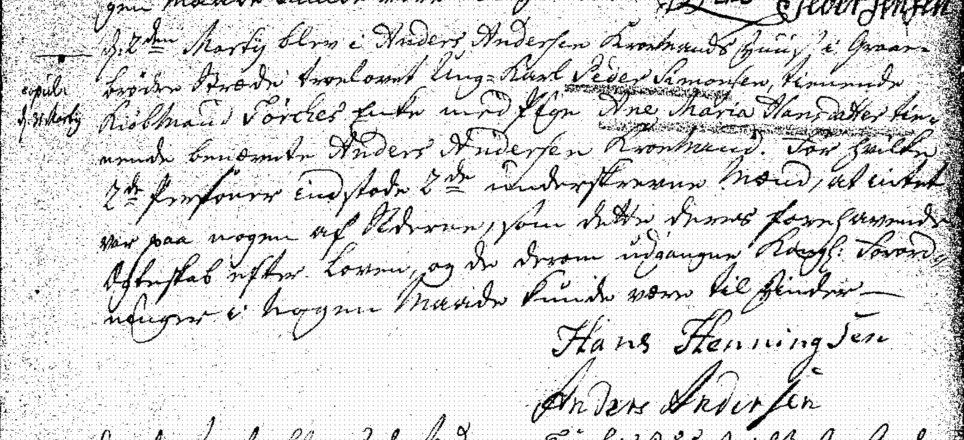 Peder Jensen
d: 2den Martij blev i Anders Andersen Kroemands Huus i Graae-
brødre Stræde troelovet Ung-Karl Peder Simonsen, tienende
copul:
d: Martij
Kiøbmand Enke med Pige Ane Maria Hansdatter tie-
nende benævnte Anders Andersen Kroemand. For hvilke
2de Personer indstode 2de underskrevne Mænd, at intet
var paa nogen af Siderne, som dette deres forehavende
Egteskab efter Loven, og de derom udgangne Kongl: Forord-
ninger i nogen Maade kunde være til Hinder
Hans Henningsen
Anders Andersen